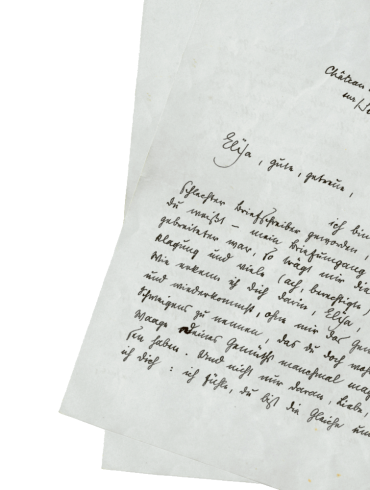 Château
sur
Elya, gute, getreue,
ich bin
schlechter Briefschreiber geworden,
du weißt – mein Briefumgang
gebreiteter war, so trägt mir die
klagung und viele (ach, berechtigte)
Wie erkenn ich dich darin, Elya,
und wiederkommst, ohne mir das
Schweigens zu nennen, das du doch
Waage Deines Gemüths manchmal
sen haben. Und nicht nur daran, Liebe,
ich dich : ich fühle, du bist die Gleiche